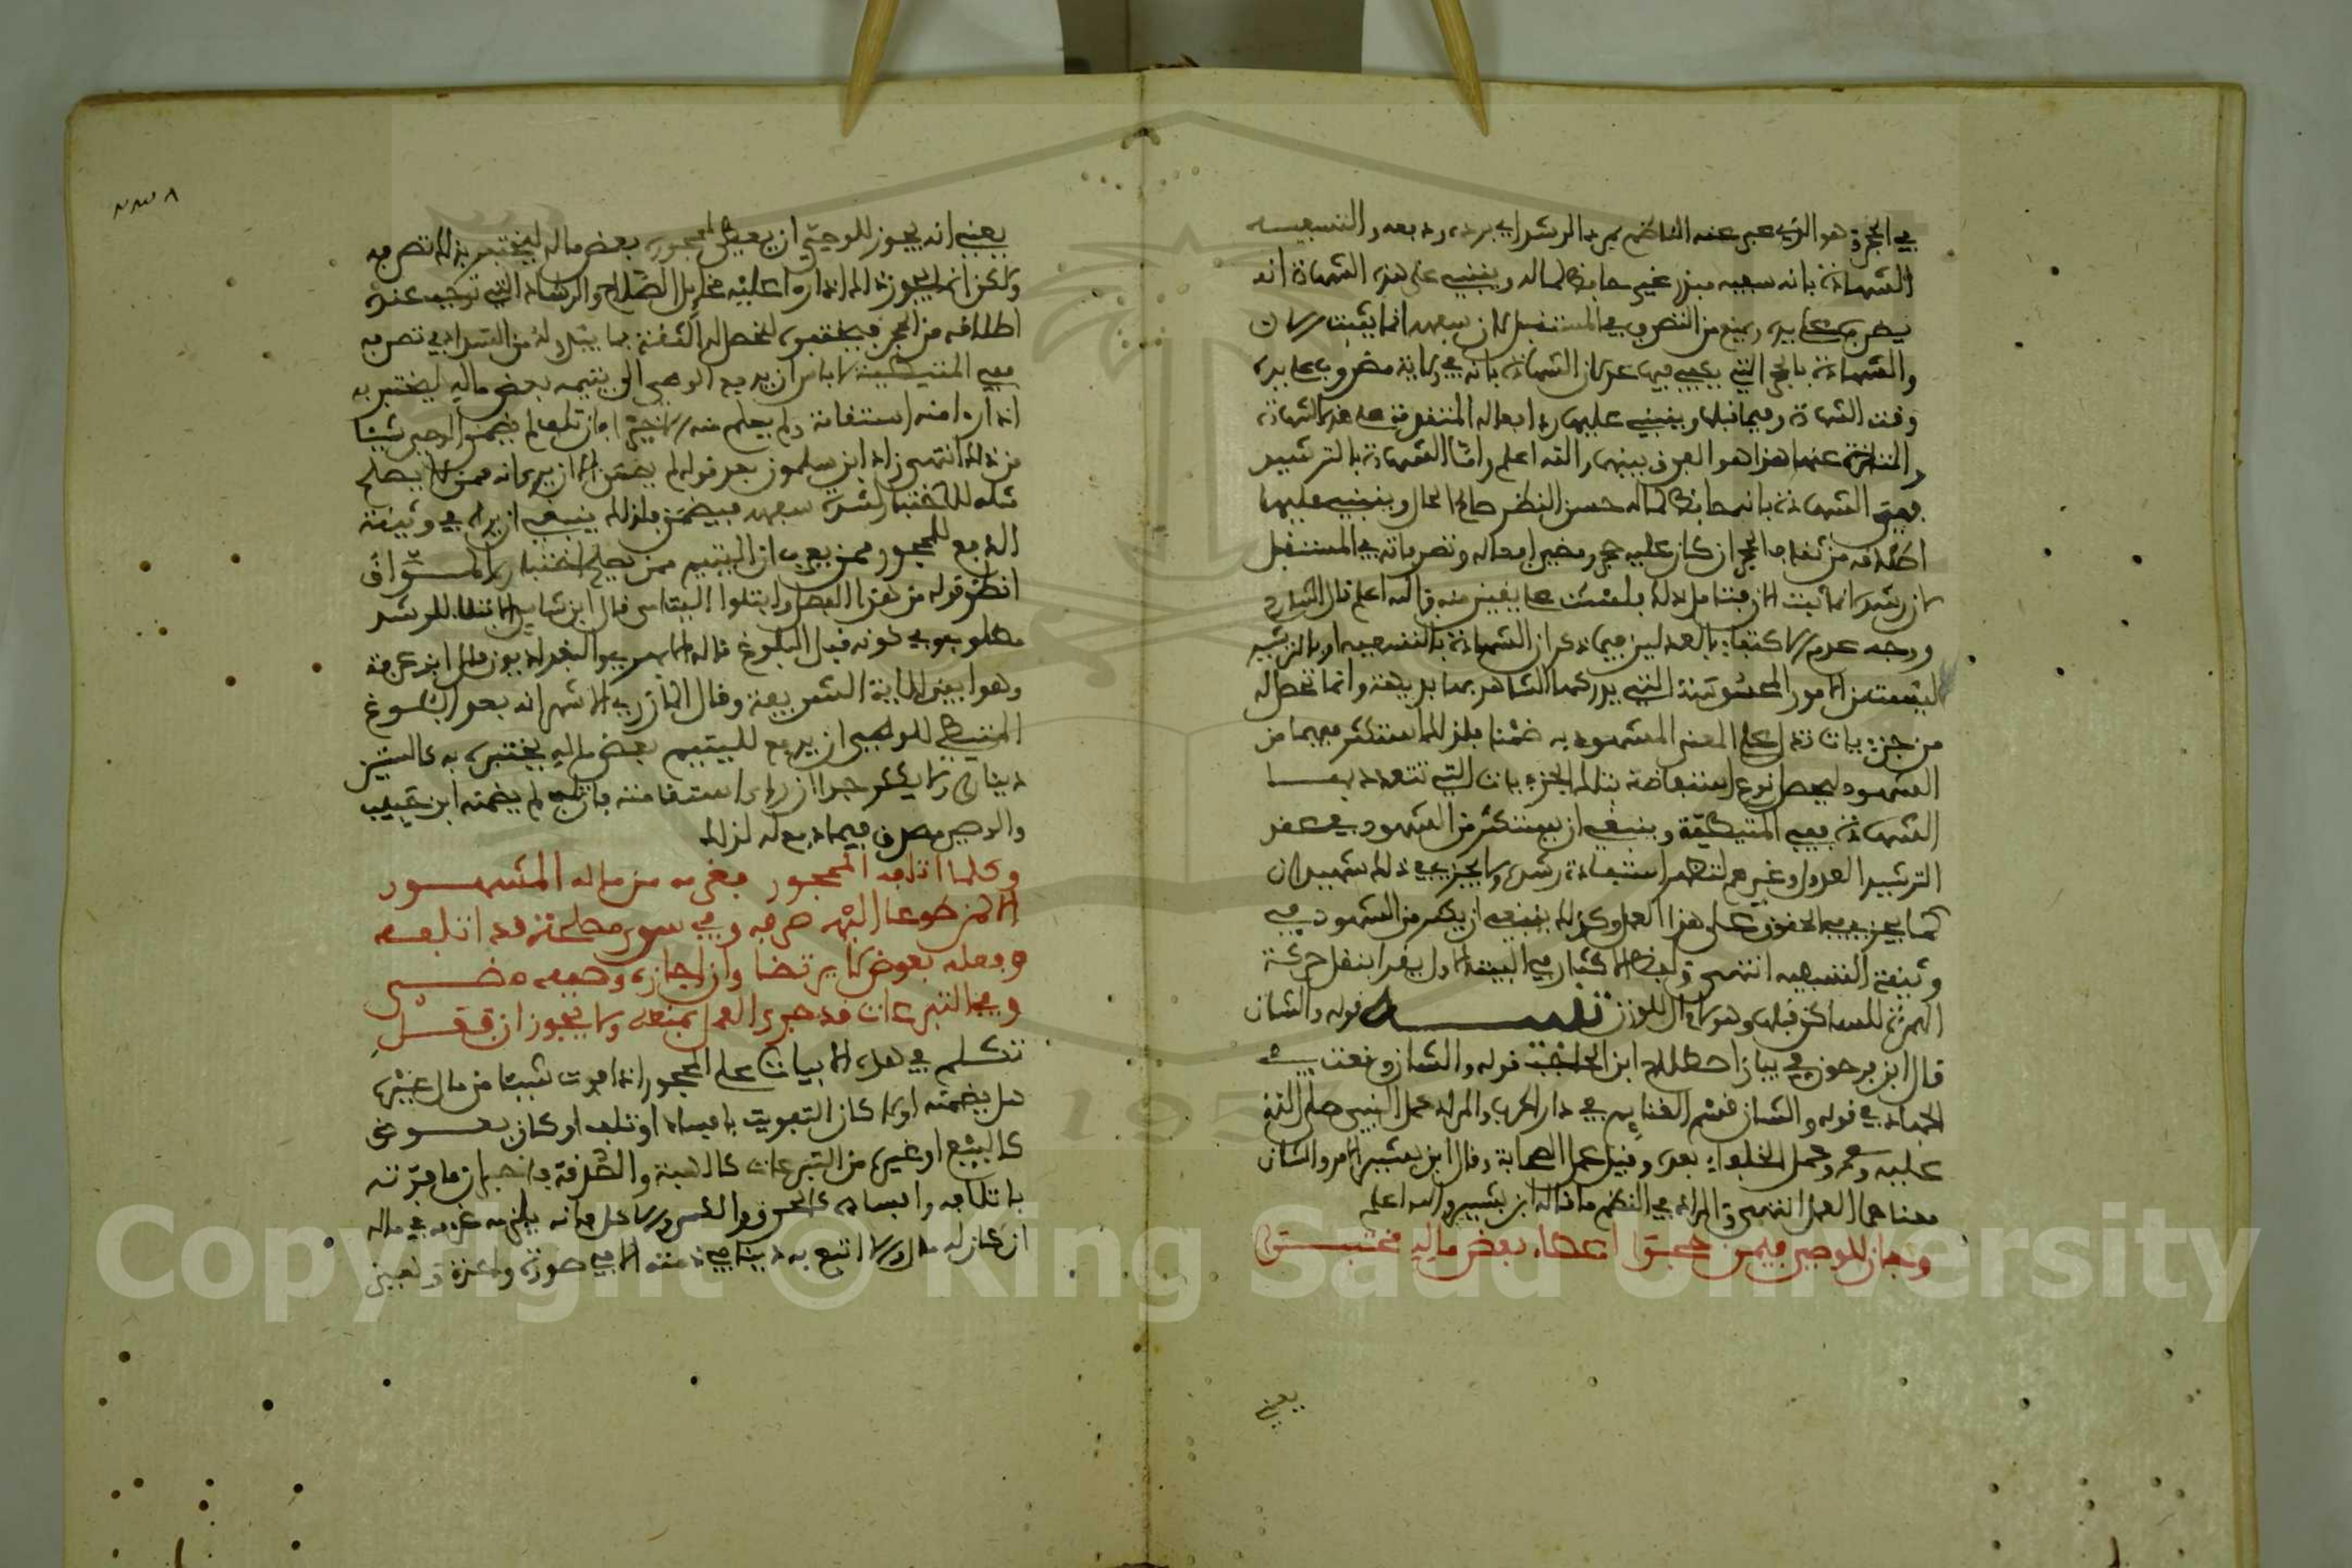 في الحجر وهو الذي عبر عنه الناظم بمرد الرشد اي برده ودفعه والتسفيه
الشهادة بانه سفيه مبذر غير حافظ لماله وينبني على هذه الشهادة انه
يضرب على يده ويمنع من التصرف في المستقبل لان سفهه انما يثبت الان
والشهادة بالحجر التي يكفي فيها عدلان الشهادة بانه في ولاية مضروب على يده
وقت الشهادة وفيما قبلها وينبني عليها رد افعاله المتقدمة على هذه الشهادة
والمتاخرة عنها هذا هو الفرق بينهما والله اعلم واما الشهادة بالترشيد
فهي الشهادة بانه حافظ لماله حسن النظر صالح الحال وينبني عليها
اطلاقه من ثقاف الحجر ان كان عليه حجر ومضي افعاله وتصرفاته في المستقبل
لان رشده انما ثبت الان فتامل ذلك فلست على يقين منه والله اعلم قال الشارح
ووجه عدم الاكتفاء بالعدلين فيما ذكر ان الشهادة بالتسفيه او بالترشيد
ليست من الامور المحسوسة التي يدركها الشاهد بها بديهة وانما تحصل له
من جزءيات تدل على المعنى المشهود به ضمنا فلذلك استكثر فيهما من
الشهود ليحصل نوع استفاضة بتلك الجزءيات التي تتعدد بها
الشهادة ففي المتيطية وينبغي ان يستكثر من الشهود في عقد
الترشيد العدول وغيرهم لتظهر استفادة رشده ولا يجزي في ذلك شهيدان
كما يجزي في الحقوق على هذا العمل وكذلك ينبغي ان يكثر من الشهود في
وثيقة التسفيه انتهى ولفظ الاكثار في البيت الاول يقرا بنقل حركة
الهمزة للساكن قبلها وهو لام ال للوزن تنبيه قوله والشان
قال ابن فرحون في بيان اصطلاح ابن الحاجب قوله والشان وقعت في
الجهاد في قوله والشان قسم الغنائم في دار الحرب والمراد عمل النبي صلى الله
عليه وسلم وعمل الخلفاء بعده وقيل عمل الصحابة وقال ابن بشير الامر والشان
معناهما العمل انتهى والمراد في النظم ما قاله ابن بشير والله اعلم
وجاز للوصي فيمن حجرا اعطاء بعض ماله مختبرا
يعني
يعني انه يجوز للوصي ان يعطي لمحجوره بعض ماله ليختبر بذلك تصرفه
ولكن انما يجوز ذلك اذا راى عليه مخايل الصلاح والرشاد التي توجب عنده
اطلاقه من الحجر فيختبره لتحصل له الثقة بما يتوله من السداد في تصرفه
ففي المتيطية لا باس ان يدفع الوصي الى يتيمه بعض ماله ليختبره به
اذا راى منه استقامة ولم يعلم منه الا خيرا فان تلف لم يضمن الوصي شيئا
من ذلك انتهى زاد ابن سلمون بعد قوله لم يضمن الا ان يرى انه ممن لا يصلح
مثله للاختبار لشدة سفهه فيضمن فلذلك ينبغي ان يزاد في وثيقة
الدفع للمحجور وممن يعرف ان اليتيم ممن يصلح اختباره المواق
انظر قوله من هذا الفصل وابتلوا اليتامى قال ابن شاس الابتلاء للرشد
مطلوب وفي كونه قبل البلوغ قاله الابهري والبغداديون قال ابن عرفة
وهو ابين للاية الشريفة وقال المازري الاشهر انه بعد البلوغ
المتيطي للوصي ان يدفع لليتيم بعض ماله يختبره به كالستين
دينارا ولا يكثر جدا ان راى استقامته فان تلف لم يضمنه ابن حبيب
والوصي مصدق فيما دفع له لذلك
وكلما اتلفه المحجور فغرمه من ماله المشهور
الا لمن طوعا اليه صرفه وفي سوى مصلحة قد اتلفه
وفعله بعوض لا يرتضى وان اجازه وصيه مضى
وفي التبرعات قد جرى العمل بمنعه ولا يجوز ان فعل
تكلم في هذه الابيات على المحجور اذا فوت شيئا من مال غيره
هل يضمنه او لا كان التفويت بافساد او تلف او كان بعوض
كالبيع او غيره من التبرعات كالهبة والصدقة فاخبر ان ما فوته
باتلافه وافساده كالحرق والكسر والاكل فانه يلزمه غرمه في ماله
ان كان له مال والا اتبع به دينا في ذمته الا في صورة واحدة وتعين